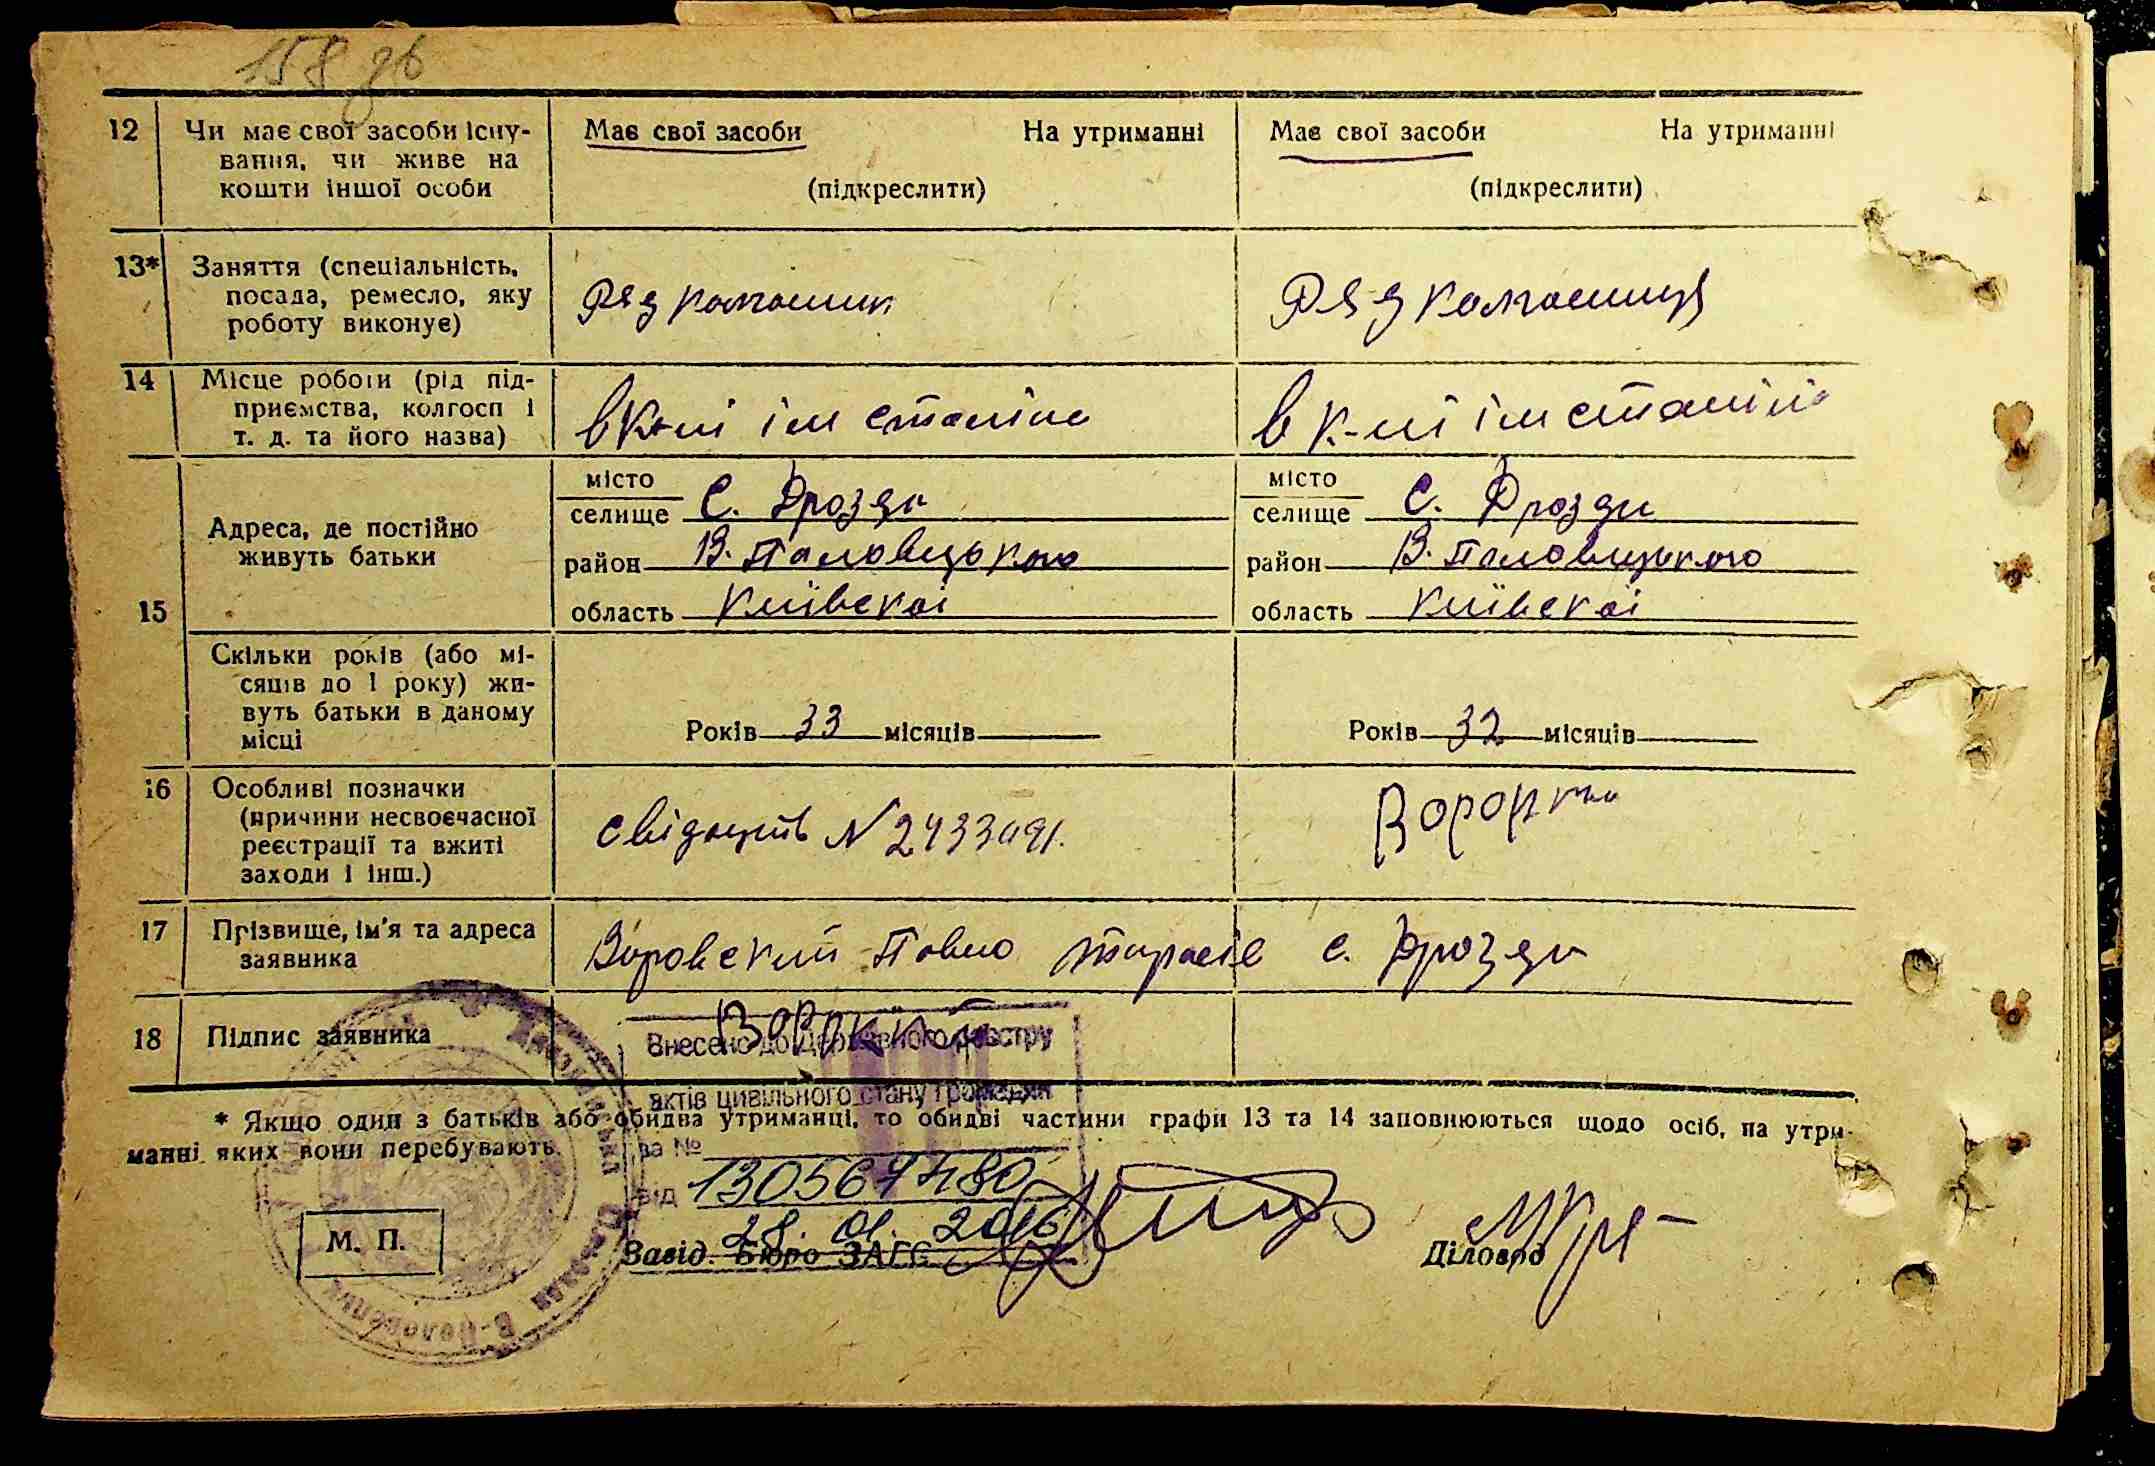 158 зв
12 Чи має свої засоби існу-
вання, чи живе на
кошти іншої особи
Має свої засоби На утриманні
(підкреслити)
Має свої засоби На утриманні
(підкреслити)
13* Заняття (спеціальність,
посада, ремесло, яку
роботу виконує)
Ряд колгошник
Ряд колгошниця
14 Місце роботи (рід під-
приємства, колгосп і
т. д. та його назва)
в к-пі ім сталіна
в к-пі ім сталіна
15 Адреса, де постійно
живуть батьки
місто
селище С. Дрозди
район В. Половецького
область Київскоі
місто
селище С. Дрозди
район В. Половецького
область Київскоі
Скільки років (або мі-
сяців до 1 року) жи-
вуть батьки в даному
місці
Років 33 місяців
Років 32 місяців
16 Особливі позначки
(причини несвоєчасної
реєстрації та вжиті
заходи і інш.)
свідоцтв N 2433091.
17 Прізвище, ім'я та адреса
заявника
Воровский Павло Тарасів с. Дрозди
18 Підпис заявника
Внесено до Державного реєстру
актів цивільного стану громадян
за №
від 130567480
28. 01. 2016
* Якщо один з батьків або обидва утриманці, то обидві частини графи 13 та 14 заповнюються щодо осіб, на утри-
манні яких вони перебувають.
М. П.
Завід. Бюро ЗАГС
Діловод